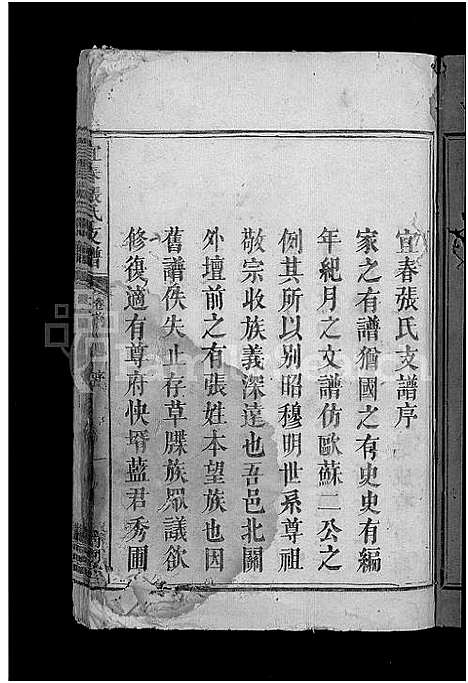 宜春張氏支譜序
家之有譜猶國之有史史有編
年紀月之文譜仿歐蘇二公之
例其所以别昭穆明世系尊祖
敬宗收族義深遠也吾邑北關
外壇前之有張姓本望族也因
舊譜佚失止存草牒族眾議欲
修復適有尊府快壻藍君秀圃
宜春張氏支譜